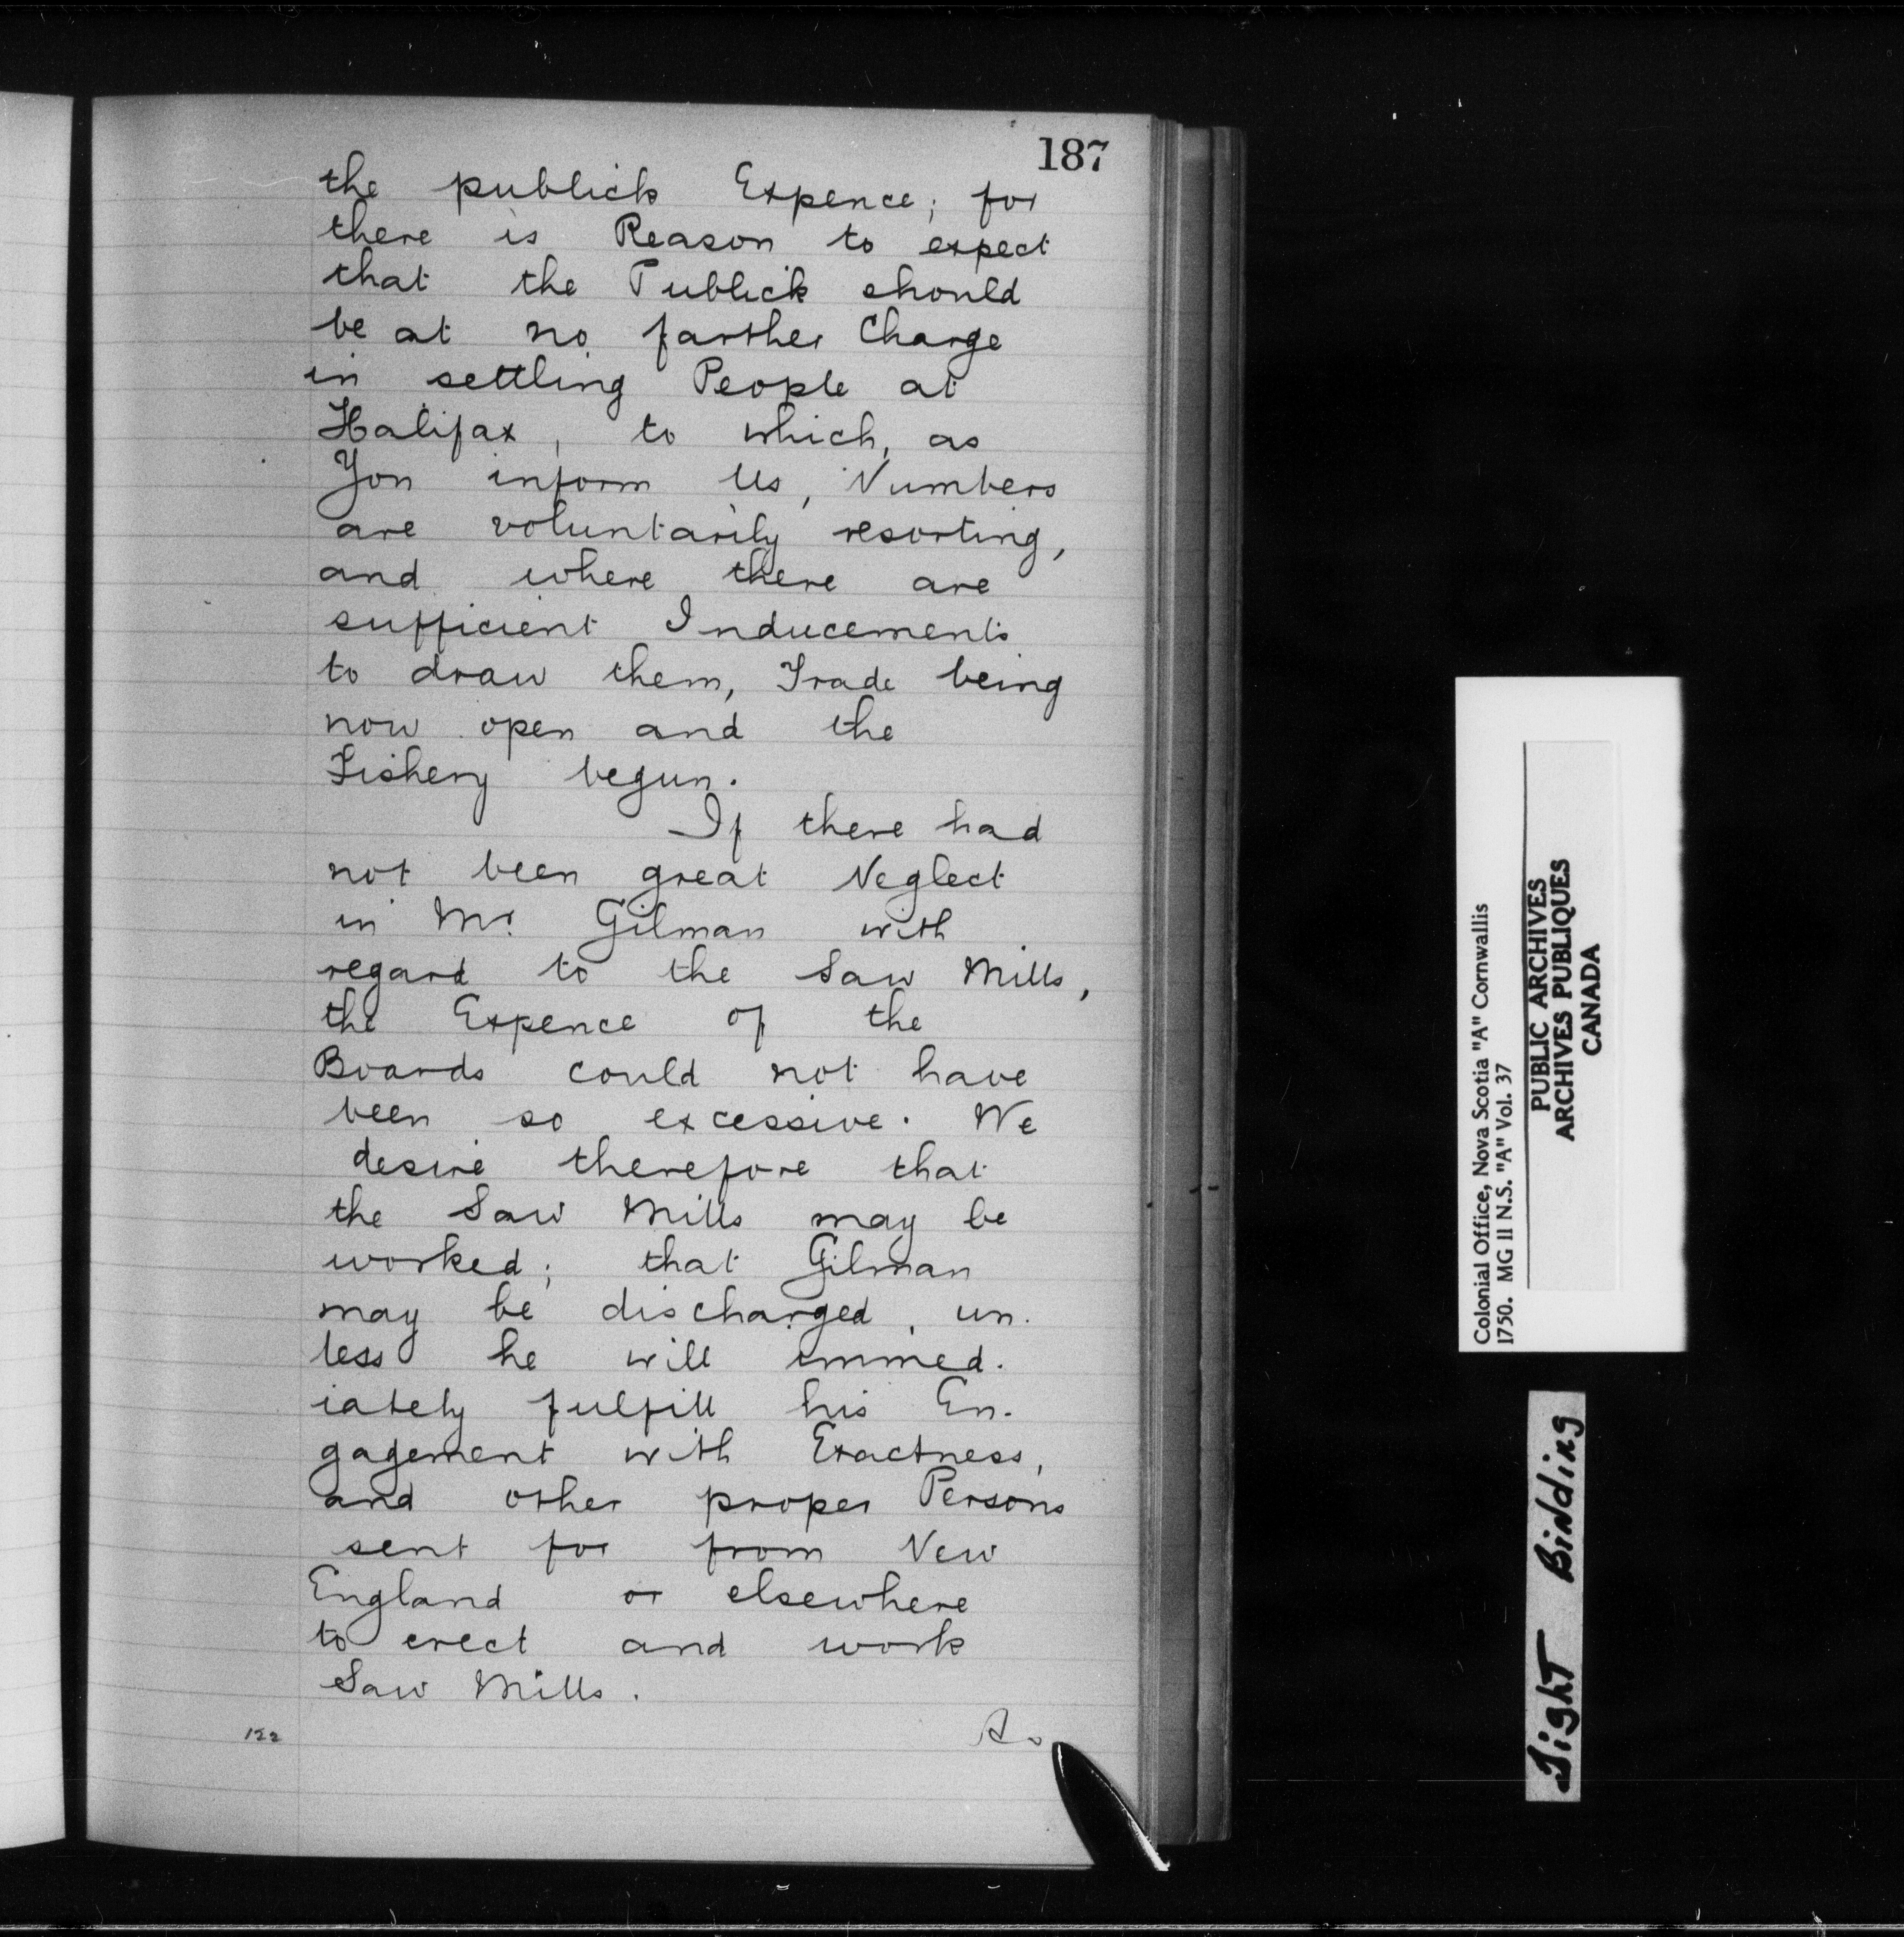 187
the publick Expence; for
there is Reason to expect
that the Publick should
be at no farther Charge
in settling People at
Halifax, to which, as
You inform Us, Numbers
are voluntarily resorting,
and where there are
sufficient Inducements
to draw them, Trade being
now open and the
Fishery begun.
If there had
not been great Neglect
in Mr. Gilman with
regard to the Saw Mills,
the Expence of the
Boards could not have
been so excessive. We
desire therefore that
the Saw Mills may be
worked; that Gilman
may be discharged, un-
less he will immed-
iately fulfill his En-
gagement with Exactness,
and other proper Persons
sent for from New
England or elsewhere
to erect and work
Saw Mills.
Colonial Office, Nova Scotia "A" Cornwallis
1750. MG 11 N.S. "A" Vol. 37
PUBLIC ARCHIVES
ARCHIVES PUBLIQUES
CANADA
Tight Binding